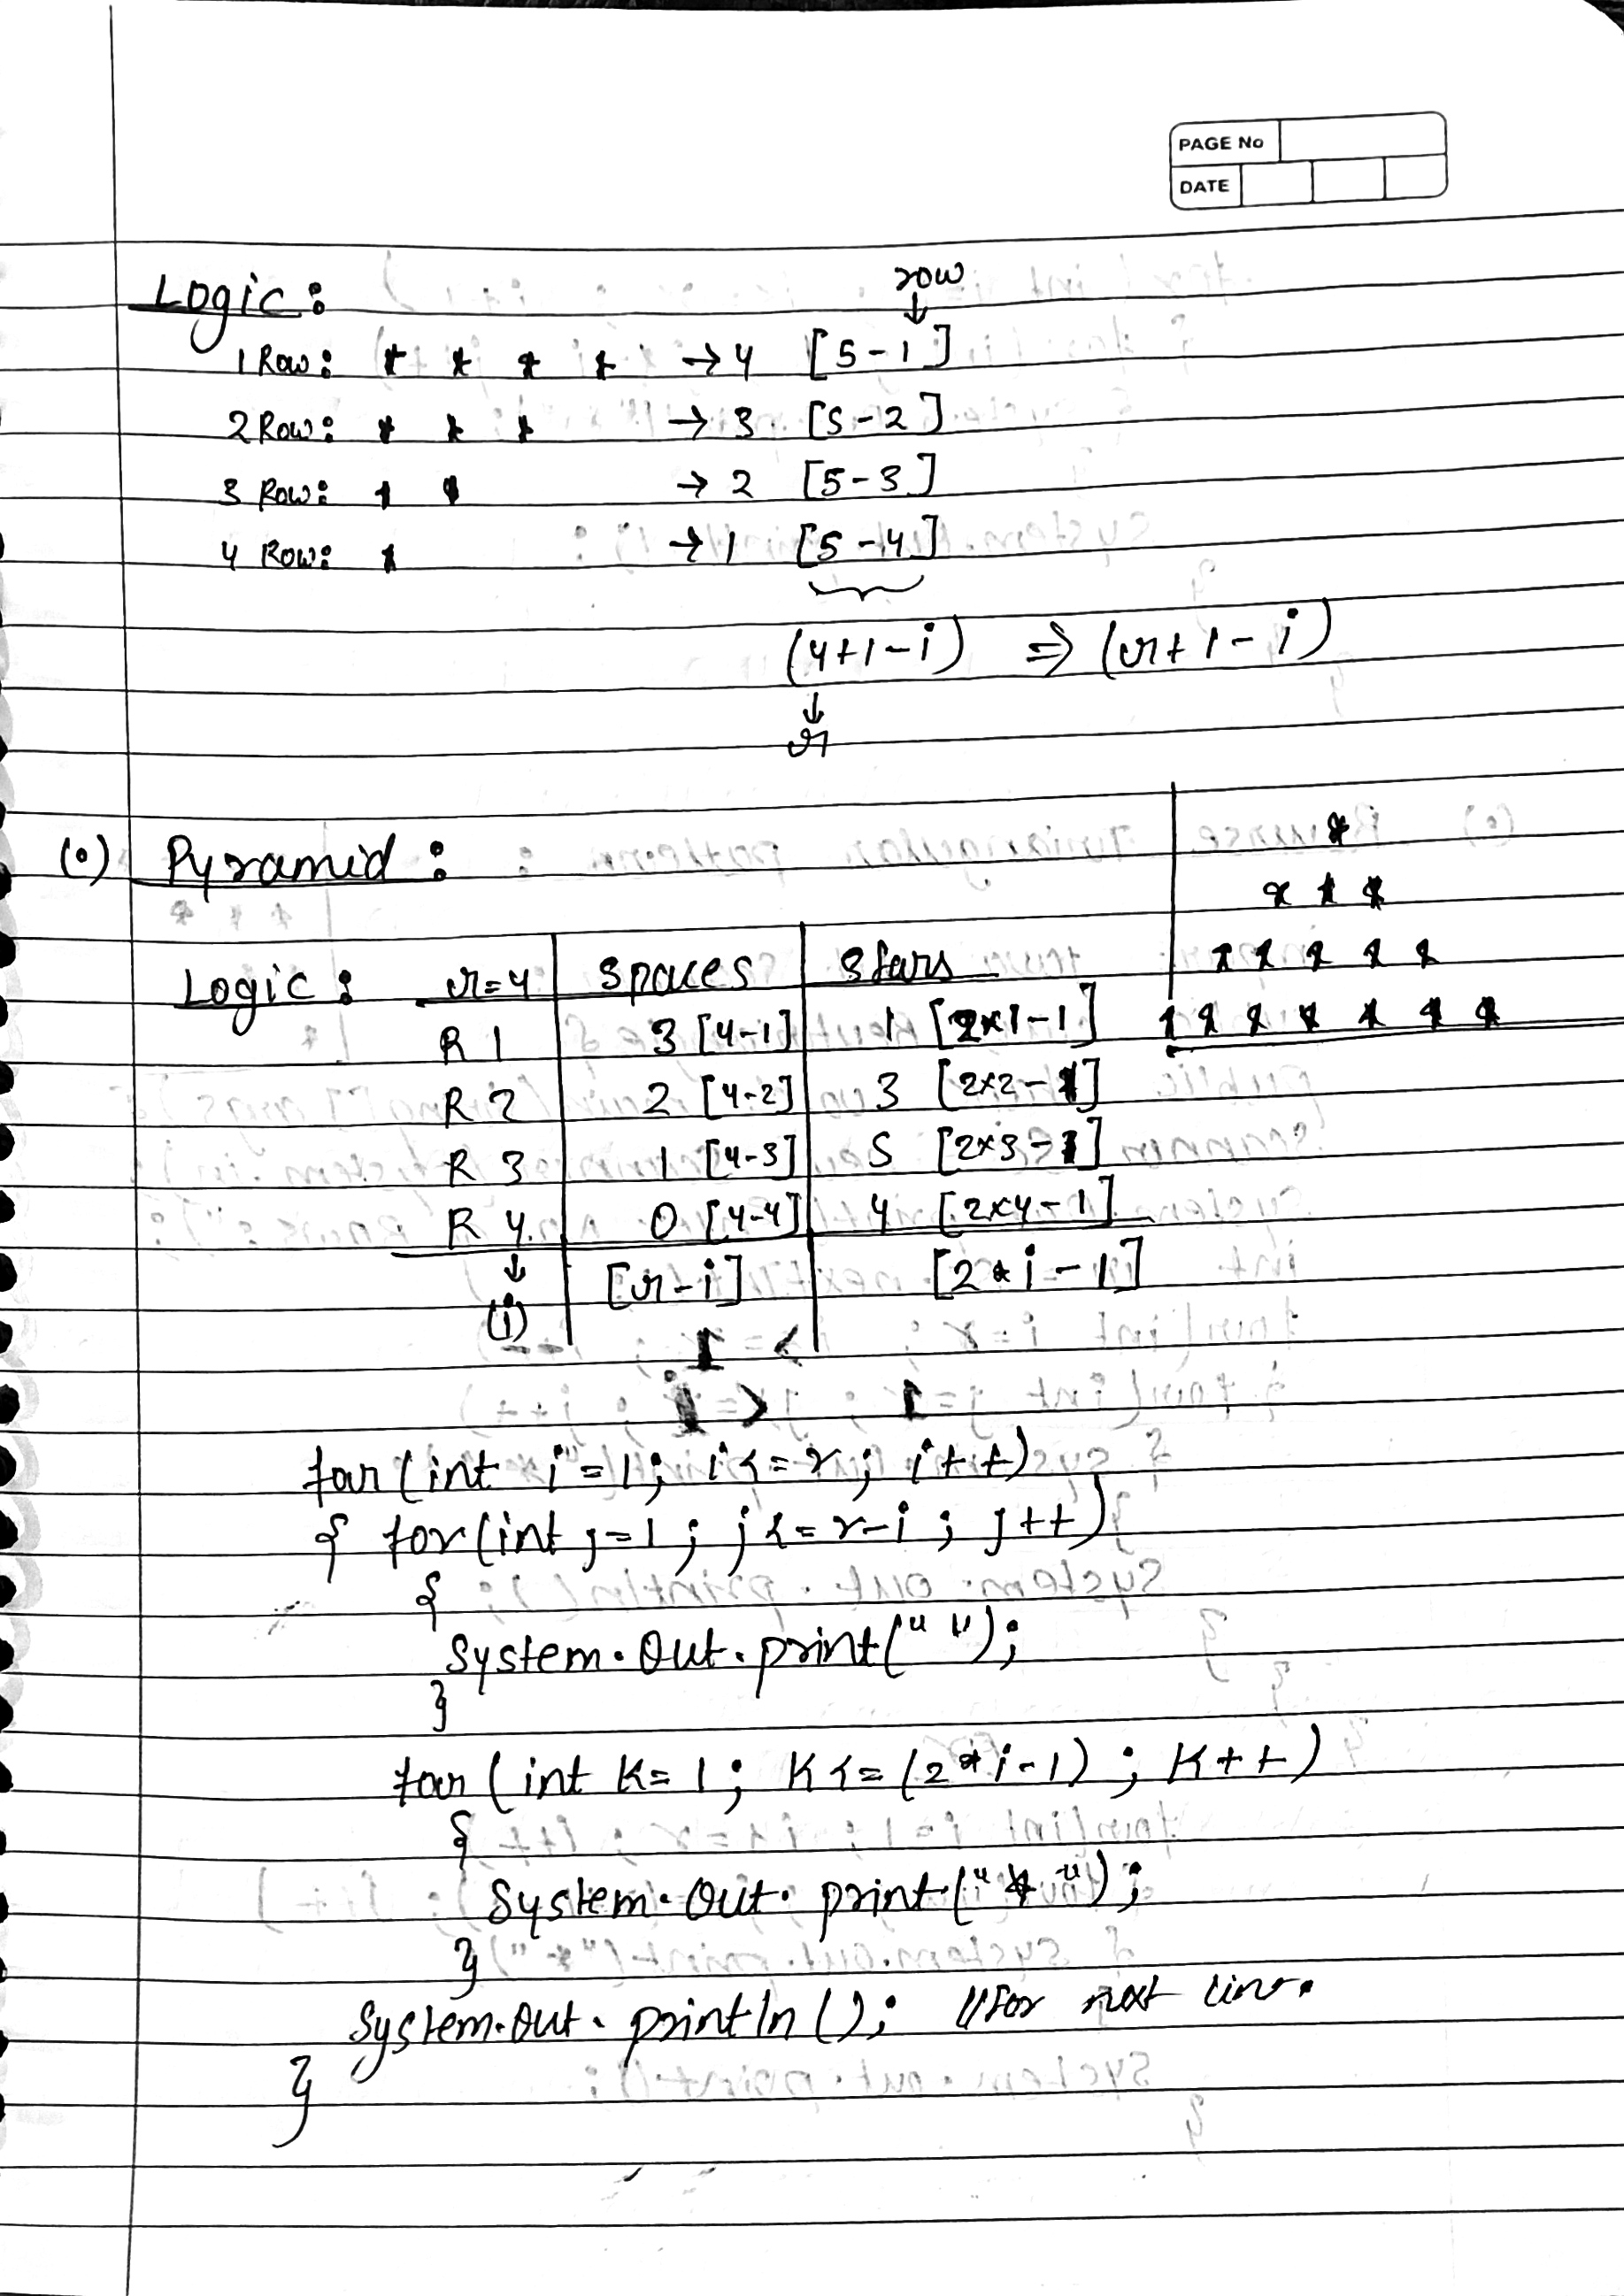 PAGE No
DATE
Logic:
row
↓
1 Row: * * * * → 4 [5-1]
2 Row: * * * → 3 [5-2]
3 Row: * * → 2 [5-3]
4 Row: * → 1 [5-4]
(4+1-i) ⇒ (r+1-i)
↓
r
(•) Pyramid:
*
* * *
* * * * *
* * * * * * *
Logic: r=4 spaces stars
R 1 3 [4-1] 1 [2×1-1]
R 2 2 [4-2] 3 [2×2-1]
R 3 1 [4-3] 5 [2×3-1]
R 4 0 [4-4] 4 [2×4-1]
↓ [r-i] [2*i-1]
(i)
for (int i=1; i<=r; i++)
{ for (int j=1; j<=r-i; j++)
{
System.Out.print(" ");
}
for (int K=1; K<=(2*i-1); K++)
{
System.Out.print("*");
}
System.out.println(); //For next line.
}